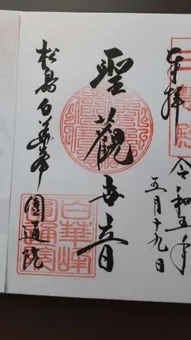 奉拝
令和五年
五月十九日
聖觀世音
松島白華峰
圓通院
白華峰